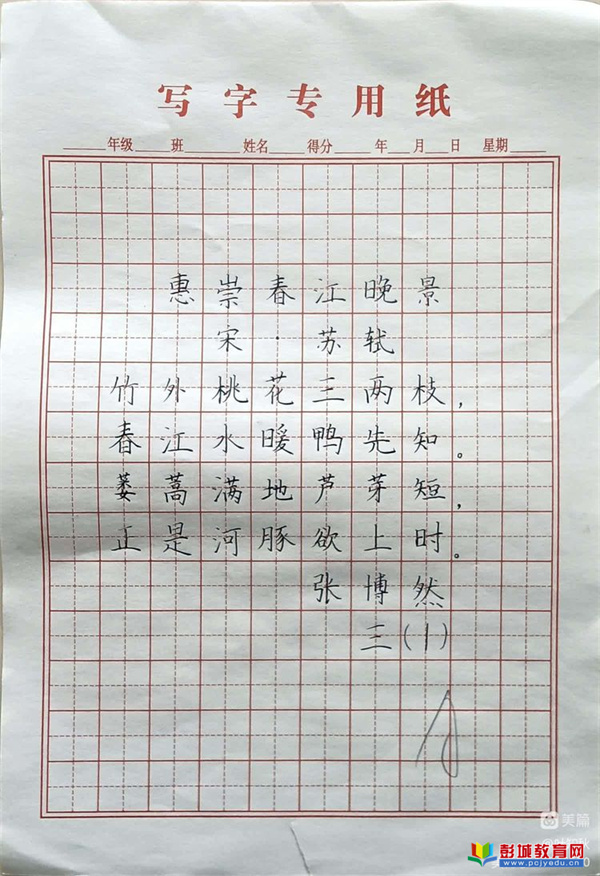 写字专用纸
年级 班 姓名 得分 年 月 日 星期
惠崇春江晚景
宋·苏轼
竹外桃花三两枝，
春江水暖鸭先知。
蒌蒿满地芦芽短，
正是河豚欲上时。
张博然
三(1)
美篇
彭城教育网
www.pcjyedu.cn